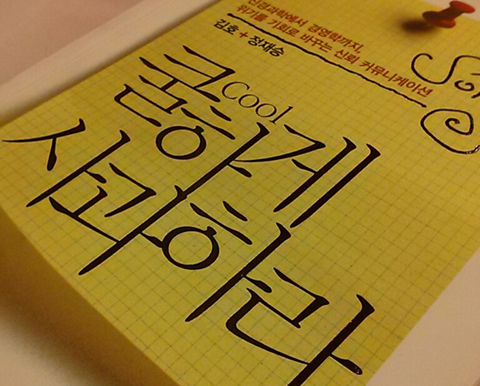 신경과학에서 경영학까지,
위기를 기회로 바꾸는 신뢰 커뮤니케이션
김호 + 정재승
Cool
쿨하게
사과하라